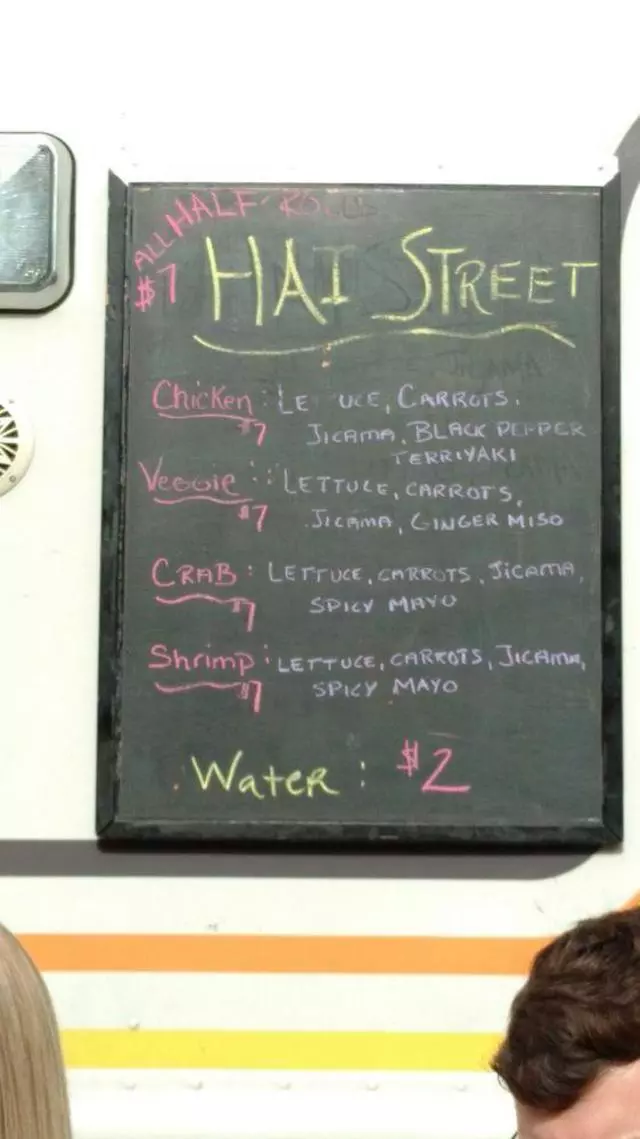 ALL HALF ROLLS
$7
HAI STREET
Chicken: LE UCE, CARROTS,
$7 JICAMA, BLACK PEPPER
TERRIYAKI
Veggie: LETTUCE, CARROTS,
$7 JICAMA, GINGER MISO
CRAB: LETTUCE, CARROTS, JICAMA,
$7 SPICY MAYO
Shrimp: LETTUCE, CARROTS, JICAMA,
$7 SPICY MAYO
Water: $2